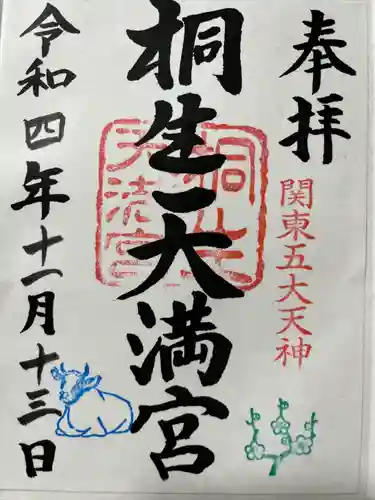 奉拝
関東五大天神
桐生天満宮
桐生
天満宮
令和四年十一月十三日